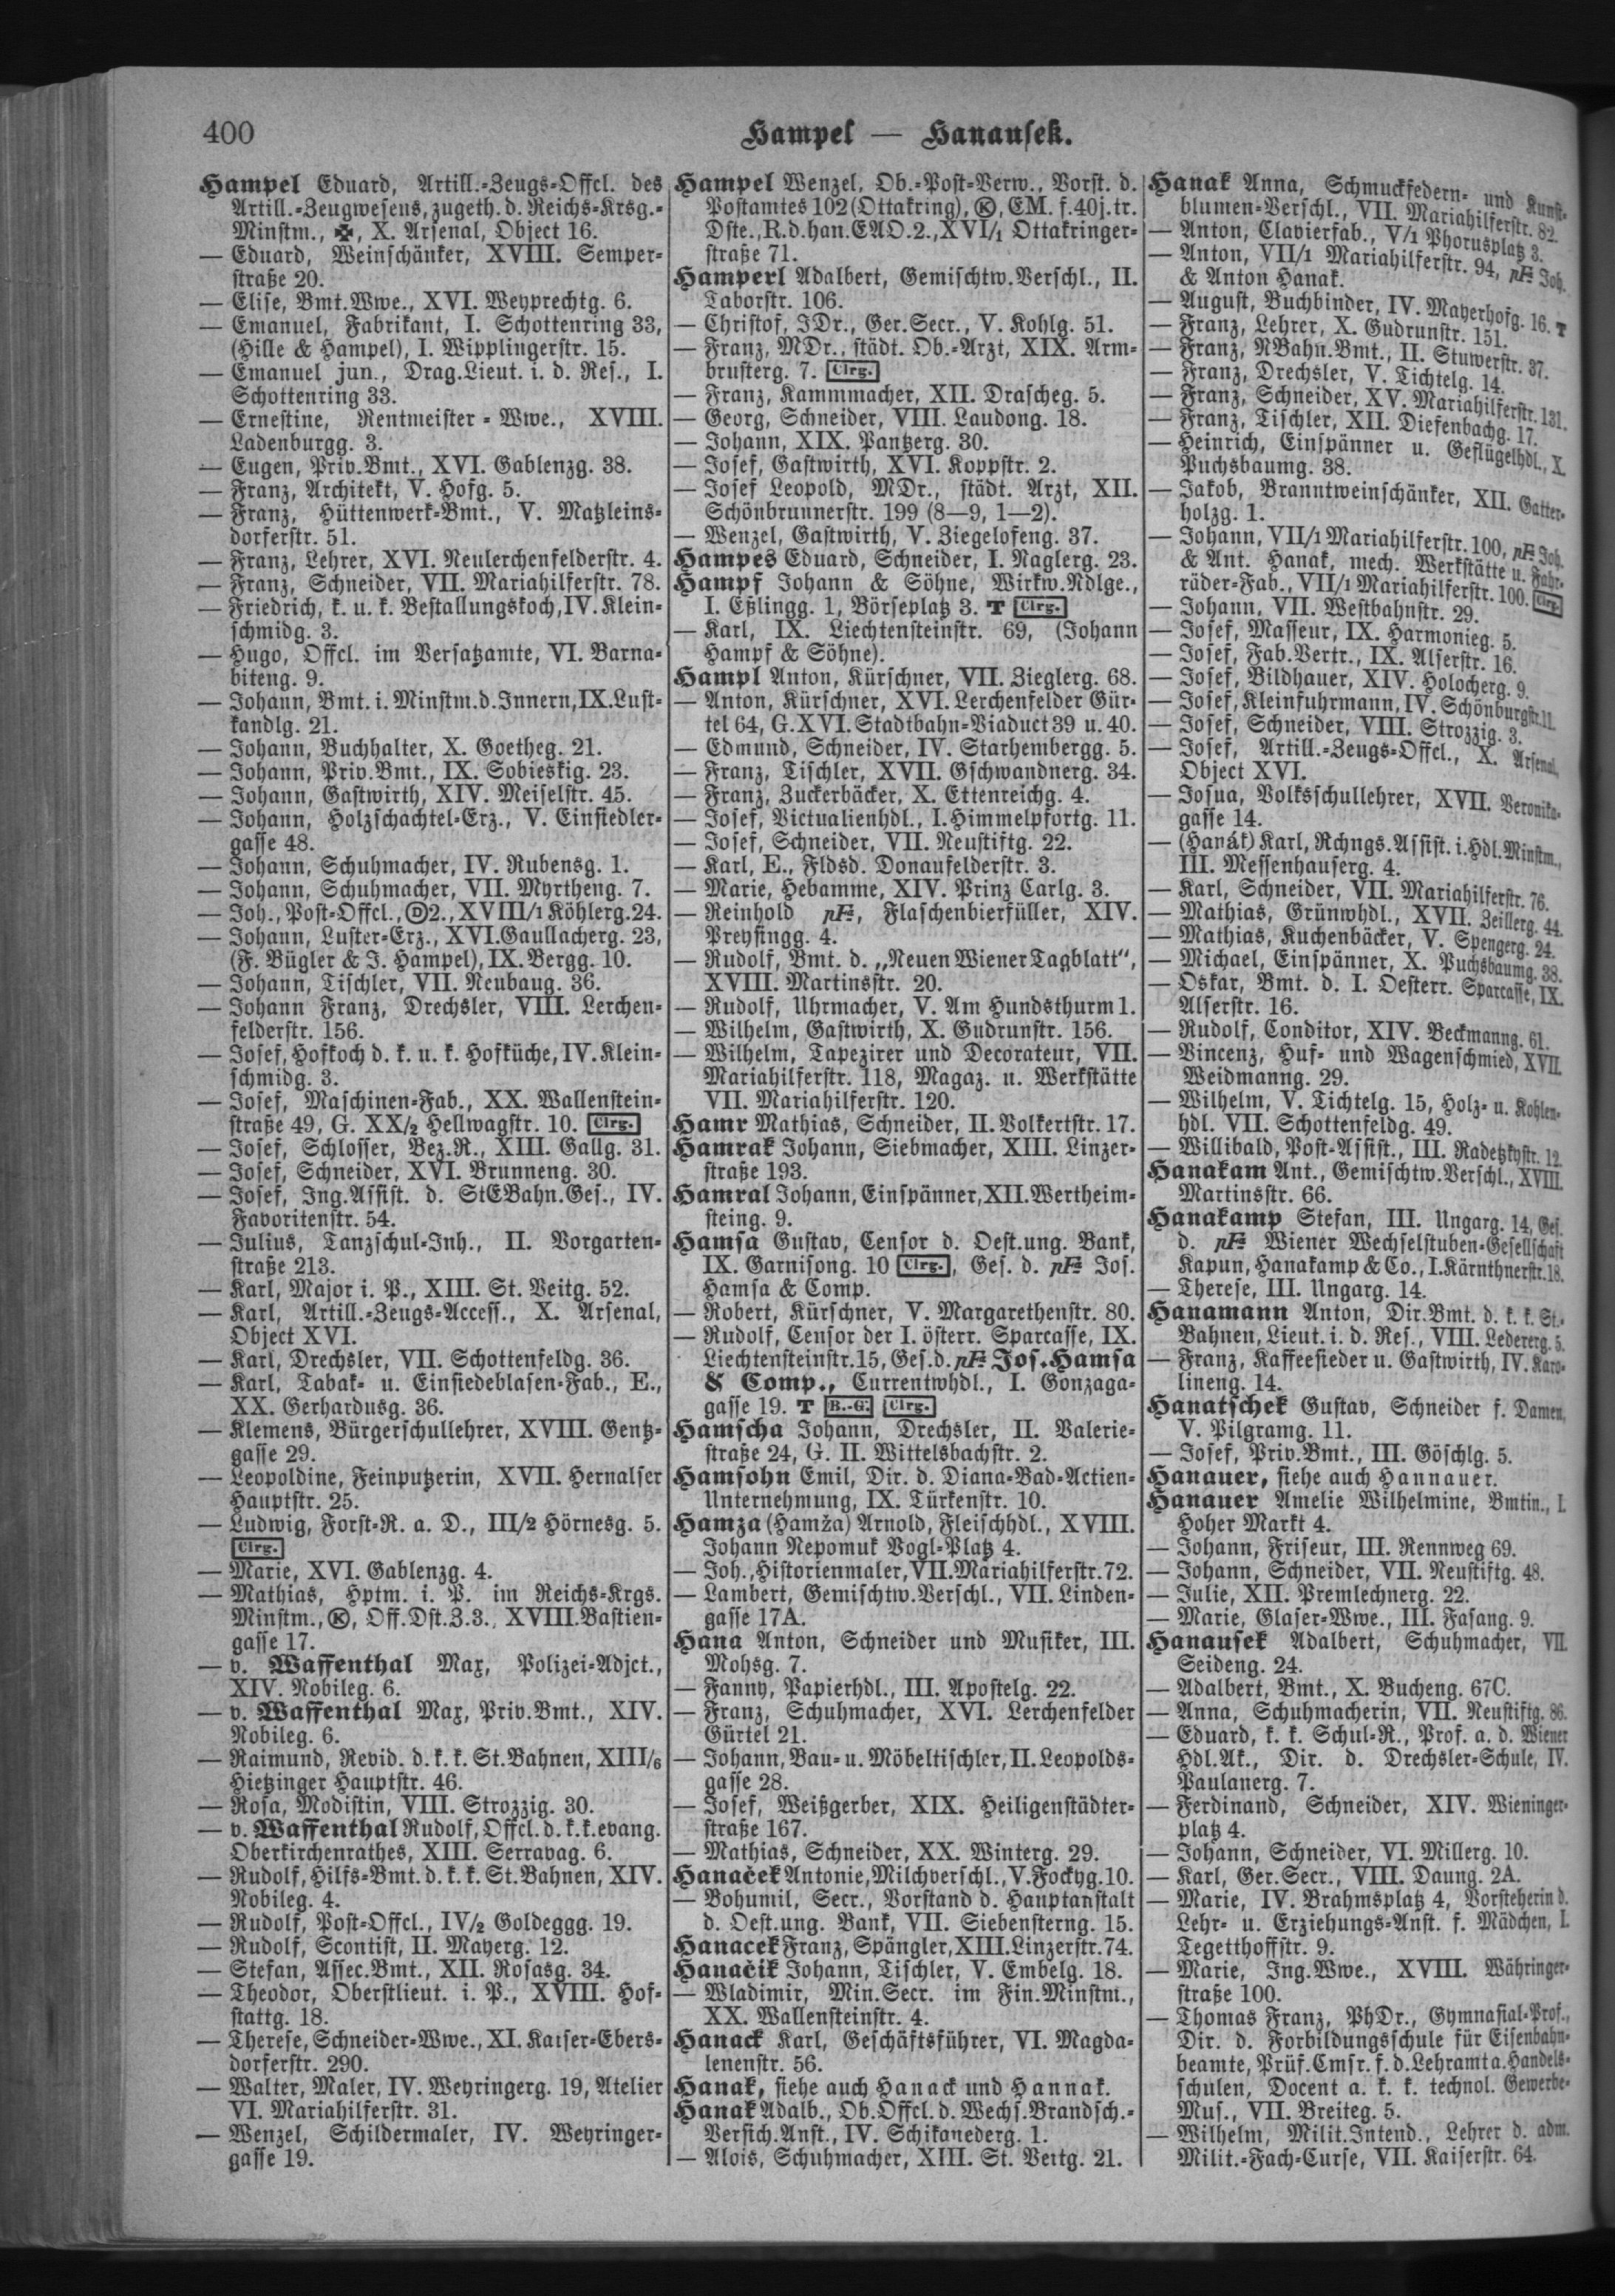 400
Hampel — Hanausek.
Hampel Eduard, Artill.-Zeugs-Offcl. des
Artill.-Zeugwesens, zugeth. d. Reichs-Krsg.-
Minstm., ✠, X. Arsenal, Object 16.
— Eduard, Weinschänker, XVIII. Semper-
straße 20.
— Elise, Bmt.Wwe., XVI. Weyprechtg. 6.
— Emanuel, Fabrikant, I. Schottenring 33,
(Hille & Hampel), I. Wipplingerstr. 15.
— Emanuel jun., Drag.Lieut. i. d. Res., I.
Schottenring 33.
— Ernestine, Rentmeister-Wwe., XVIII.
Ladenburgg. 3.
— Eugen, Priv.Bmt., XVI. Gablenzg. 38.
— Franz, Architekt, V. Hofg. 5.
— Franz, Hüttenwerk-Bmt., V. Matzleins-
dorferstr. 51.
— Franz, Lehrer, XVI. Neulerchenfelderstr. 4.
— Franz, Schneider, VII. Mariahilferstr. 78.
— Friedrich, k. u. k. Bestallungskoch, IV. Klein-
schmidg. 3.
— Hugo, Offcl. im Versatzamte, VI. Barna-
biteng. 9.
— Johann, Bmt. i. Minstm. d. Innern, IX. Lust-
kandlg. 21.
— Johann, Buchhalter, X. Goetheg. 21.
— Johann, Priv.Bmt., IX. Sobieskig. 23.
— Johann, Gastwirth, XIV. Meiselstr. 45.
— Johann, Holzschachtel-Erz., V. Einsiedler-
gasse 48.
— Johann, Schuhmacher, IV. Rubensg. 1.
— Johann, Schuhmacher, VII. Myrtheng. 7.
— Joh., Post-Offcl., Ⓓ2., XVIII/1 Köhlerg. 24.
— Johann, Luster-Erz., XVI. Gaullacherg. 23,
(F. Bügler & J. Hampel), IX. Bergg. 10.
— Johann, Tischler, VII. Neubaug. 36.
— Johann Franz, Drechsler, VIII. Lerchen-
felderstr. 156.
— Josef, Hofkoch d. k. u. k. Hofküche, IV. Klein-
schmidg. 3.
— Josef, Maschinen-Fab., XX. Wallenstein-
straße 49, G. XX/2 Hellwagstr. 10. Clrg.
— Josef, Schlosser, Bez.R., XIII. Gallg. 31.
— Josef, Schneider, XVI. Brunneng. 30.
— Josef, Ing.Assist. d. StEBahn.Ges., IV.
Favoritenstr. 54.
— Julius, Tanzschul-Inh., II. Vorgarten-
straße 213.
— Karl, Major i. P., XIII. St. Veitg. 52.
— Karl, Artill.-Zeugs-Access., X. Arsenal,
Object XVI.
— Karl, Drechsler, VII. Schottenfeldg. 36.
— Karl, Tabak- u. Einsiedeblasen-Fab., E.,
XX. Gerhardusg. 36.
— Klemens, Bürgerschullehrer, XVIII. Gentz-
gasse 29.
— Leopoldine, Feinputzerin, XVII. Hernalser
Hauptstr. 25.
— Ludwig, Forst-R. a. D., III/2 Hörnesg. 5.
Clrg.
— Marie, XVI. Gablenzg. 4.
— Mathias, Hptm. i. P. im Reichs-Krgs.
Minstm., Ⓚ, Off.Dst.Z.3., XVIII. Bastien-
gasse 17.
— v. Waffenthal Max, Polizei-Adjct.,
XIV. Nobileg. 6.
— v. Waffenthal Max, Priv.Bmt., XIV.
Nobileg. 6.
— Raimund, Revid. d. k. k. St.Bahnen, XIII/6
Hietzinger Hauptstr. 46.
— Rosa, Modistin, VIII. Strozzig. 30.
— v. Waffenthal Rudolf, Offcl. d. k. k. evang.
Oberkirchenrathes, XIII. Serravag. 6.
— Rudolf, Hilfs-Bmt. d. k. k. St.Bahnen, XIV.
Nobileg. 4.
— Rudolf, Post-Offcl., IV/2 Goldeggg. 19.
— Rudolf, Scontist, II. Mayerg. 12.
— Stefan, Assec.Bmt., XII. Rosasg. 34.
— Theodor, Oberstlieut. i. P., XVIII. Hof-
stattg. 18.
— Therese, Schneider-Wwe., XI. Kaiser-Ebers-
dorferstr. 290.
— Walter, Maler, IV. Weyringerg. 19, Atelier
VI. Mariahilferstr. 31.
— Wenzel, Schildermaler, IV. Weyringer-
gasse 19.
Hampel Wenzel, Ob.-Post-Verw., Vorst. d.
Postamtes 102 (Ottakring), Ⓚ, EM. f. 40j. tr.
Dste., R. d. han. EAO. 2., XVI/1 Ottakringer-
straße 71.
Hamperl Adalbert, Gemischtw.Verschl., II.
Taborstr. 106.
— Christof, JDr., Ger.Secr., V. Kohlg. 51.
— Franz, MDr., städt. Ob.-Arzt, XIX. Arm-
brusterg. 7. Clrg.
— Franz, Kammmacher, XII. Drascheg. 5.
— Georg, Schneider, VIII. Laudong. 18.
— Johann, XIX. Pantzerg. 30.
— Josef, Gastwirth, XVI. Koppstr. 2.
— Josef Leopold, MDr., städt. Arzt, XII.
Schönbrunnerstr. 199 (8—9, 1—2).
— Wenzel, Gastwirth, V. Ziegelofeng. 37.
Hampes Eduard, Schneider, I. Naglerg. 23.
Hampf Johann & Söhne, Wirkw.Ndlge.,
I. Eßlingg. 1, Börseplatz 3. T Clrg.
— Karl, IX. Liechtensteinstr. 69, (Johann
Hampf & Söhne).
Hampl Anton, Kürschner, VII. Zieglerg. 68.
— Anton, Kürschner, XVI. Lerchenfelder Gür-
tel 64, G. XVI. Stadtbahn-Viaduct 39 u. 40.
— Edmund, Schneider, IV. Starhembergg. 5.
— Franz, Tischler, XVII. Gschwandnerg. 34.
— Franz, Zuckerbäcker, X. Ettenreichg. 4.
— Josef, Victualienhdl., I. Himmelpfortg. 11.
— Josef, Schneider, VII. Neustiftg. 22.
— Karl, E., Fldsd. Donaufelderstr. 3.
— Marie, Hebamme, XIV. Prinz Carlg. 3.
— Reinhold pF, Flaschenbierfüller, XIV.
Preysingg. 4.
— Rudolf, Bmt. d. „Neuen Wiener Tagblatt“,
XVIII. Martinsstr. 20.
— Rudolf, Uhrmacher, V. Am Hundsthurm 1.
— Wilhelm, Gastwirth, X. Gudrunstr. 156.
— Wilhelm, Tapezirer und Decorateur, VII.
Mariahilferstr. 118, Magaz. u. Werkstätte
VII. Mariahilferstr. 120.
Hamr Mathias, Schneider, II. Volkertstr. 17.
Hamrak Johann, Siebmacher, XIII. Linzer-
straße 193.
Hamral Johann, Einspänner, XII. Wertheim-
steing. 9.
Hamsa Gustav, Censor d. Oest.ung. Bank,
IX. Garnisong. 10 Clrg., Ges. d. pF Jos.
Hamsa & Comp.
— Robert, Kürschner, V. Margarethenstr. 80.
— Rudolf, Censor der I. österr. Sparcasse, IX.
Liechtensteinstr. 15, Ges. d. pF Jos. Hamsa
& Comp., Currentwhdl., I. Gonzaga-
gasse 19. T B.-G. Clrg.
Hamscha Johann, Drechsler, II. Valerie-
straße 24, G. II. Wittelsbachstr. 2.
Hamsohn Emil, Dir. d. Diana-Bad-Actien-
Unternehmung, IX. Türkenstr. 10.
Hamza (Hamža) Arnold, Fleischhdl., XVIII.
Johann Nepomuk Vogl-Platz 4.
— Joh., Historienmaler, VII. Mariahilferstr. 72.
— Lambert, Gemischtw.Verschl., VII. Linden-
gasse 17A.
Hana Anton, Schneider und Musiker, III.
Mohsg. 7.
— Fanny, Papierhdl., III. Apostelg. 22.
— Franz, Schuhmacher, XVI. Lerchenfelder
Gürtel 21.
— Johann, Bau- u. Möbeltischler, II. Leopolds-
gasse 28.
— Josef, Weißgerber, XIX. Heiligenstädter-
straße 167.
— Mathias, Schneider, XX. Winterg. 29.
Hanaček Antonie, Milchverschl., V. Fockyg. 10.
— Bohumil, Secr., Vorstand d. Hauptanstalt
d. Oest.ung. Bank, VII. Siebensterng. 15.
Hanacek Franz, Spängler, XIII. Linzerstr. 74.
Hanačik Johann, Tischler, V. Embelg. 18.
— Wladimir, Min.Secr. im Fin.Minstm.,
XX. Wallensteinstr. 4.
Hanack Karl, Geschäftsführer, VI. Magda-
lenenstr. 56.
Hanak, siehe auch Hanack und Hannak.
Hanak Adalb., Ob.Offcl. d. Wechs.Brandsch.-
Versich.Anst., IV. Schikanederg. 1.
— Alois, Schuhmacher, XIII. St. Veitg. 21.
Hanak Anna, Schmuckfedern- und Kunst-
blumen-Verschl., VII. Mariahilferstr. 82.
— Anton, Clavierfab., V/1 Phorusplatz 3.
— Anton, VII/1 Mariahilferstr. 94, pF Joh.
& Anton Hanak.
— August, Buchbinder, IV. Mayerhofg. 16. T
— Franz, Lehrer, X. Gudrunstr. 151.
— Franz, NBahn.Bmt., II. Stuwerstr. 37.
— Franz, Drechsler, V. Tichtelg. 14.
— Franz, Schneider, XV. Mariahilferstr. 131.
— Franz, Tischler, XII. Diefenbachg. 17.
— Heinrich, Einspänner u. Geflügelhdl., X.
Puchsbaumg. 38.
— Jakob, Branntweinschänker, XII. Gatter-
holzg. 1.
— Johann, VII/1 Mariahilferstr. 100, pF Joh.
& Ant. Hanak, mech. Werkstätte u. Fahr-
räder-Fab., VII/1 Mariahilferstr. 100. Clrg.
— Johann, VII. Westbahnstr. 29.
— Josef, Masseur, IX. Harmonieg. 5.
— Josef, Fab.Vertr., IX. Alserstr. 16.
— Josef, Bildhauer, XIV. Holocherg. 9.
— Josef, Kleinfuhrmann, IV. Schönburgstr. 11.
— Josef, Schneider, VIII. Strozzig. 3.
— Josef, Artill.-Zeugs-Offcl., X. Arsenal,
Object XVI.
— Josua, Volksschullehrer, XVII. Veronika-
gasse 14.
— (Hanák) Karl, Rchngs.Assist. i. Hdl.Minstm.,
III. Messenhauserg. 4.
— Karl, Schneider, VII. Mariahilferstr. 76.
— Mathias, Grünwhdl., XVII. Zeillerg. 44.
— Mathias, Kuchenbäcker, V. Spengerg. 24.
— Michael, Einspänner, X. Puchsbaumg. 38.
— Oskar, Bmt. d. I. Oesterr. Sparcasse, IX.
Alserstr. 16.
— Rudolf, Conditor, XIV. Beckmanng. 61.
— Vincenz, Huf- und Wagenschmied, XVII.
Weidmanng. 29.
— Wilhelm, V. Tichtelg. 15, Holz- u. Kohlen-
hdl. VII. Schottenfeldg. 49.
— Willibald, Post-Assist., III. Radetzkystr. 12.
Hanakam Ant., Gemischtw.Verschl., XVIII.
Martinsstr. 66.
Hanakamp Stefan, III. Ungarg. 14, Ges.
d. pF Wiener Wechselstuben-Gesellschaft
Kapun, Hanakamp & Co., I. Kärnthnerstr. 18.
— Therese, III. Ungarg. 14.
Hanamann Anton, Dir.Bmt. d. k. k. St.-
Bahnen, Lieut. i. d. Res., VIII. Ledererg. 5.
— Franz, Kaffeesieder u. Gastwirth, IV. Karo-
lineng. 14.
Hanatschek Gustav, Schneider f. Damen,
V. Pilgramg. 11.
— Josef, Priv.Bmt., III. Göschlg. 5.
Hanauer, siehe auch Hannauer.
Hanauer Amelie Wilhelmine, Bmtin., I.
Hoher Markt 4.
— Johann, Friseur, III. Rennweg 69.
— Johann, Schneider, VII. Neustiftg. 48.
— Julie, XII. Premlechnerg. 22.
— Marie, Glaser-Wwe., III. Fasang. 9.
Hanausek Adalbert, Schuhmacher, VII.
Seideng. 24.
— Adalbert, Bmt., X. Bucheng. 67C.
— Anna, Schuhmacherin, VII. Neustiftg. 86.
— Eduard, k. k. Schul-R., Prof. a. d. Wiener
Hdl.Ak., Dir. d. Drechsler-Schule, IV.
Paulanerg. 7.
— Ferdinand, Schneider, XIV. Wieninger-
platz 4.
— Johann, Schneider, VI. Millerg. 10.
— Karl, Ger.Secr., VIII. Daung. 2A.
— Marie, IV. Brahmsplatz 4, Vorsteherin d.
Lehr- u. Erziehungs-Anst. f. Mädchen, I.
Tegetthoffstr. 9.
— Marie, Ing.Wwe., XVIII. Währinger-
straße 100.
— Thomas Franz, PhDr., Gymnasial-Prof.,
Dir. d. Forbildungsschule für Eisenbahn-
beamte, Prüf.Cmsr. f. d. Lehramt a. Handels-
schulen, Docent a. k. k. technol. Gewerbe-
Mus., VII. Breiteg. 5.
— Wilhelm, Milit.Intend., Lehrer d. adm.
Milit.-Fach-Curse, VII. Kaiserstr. 64.